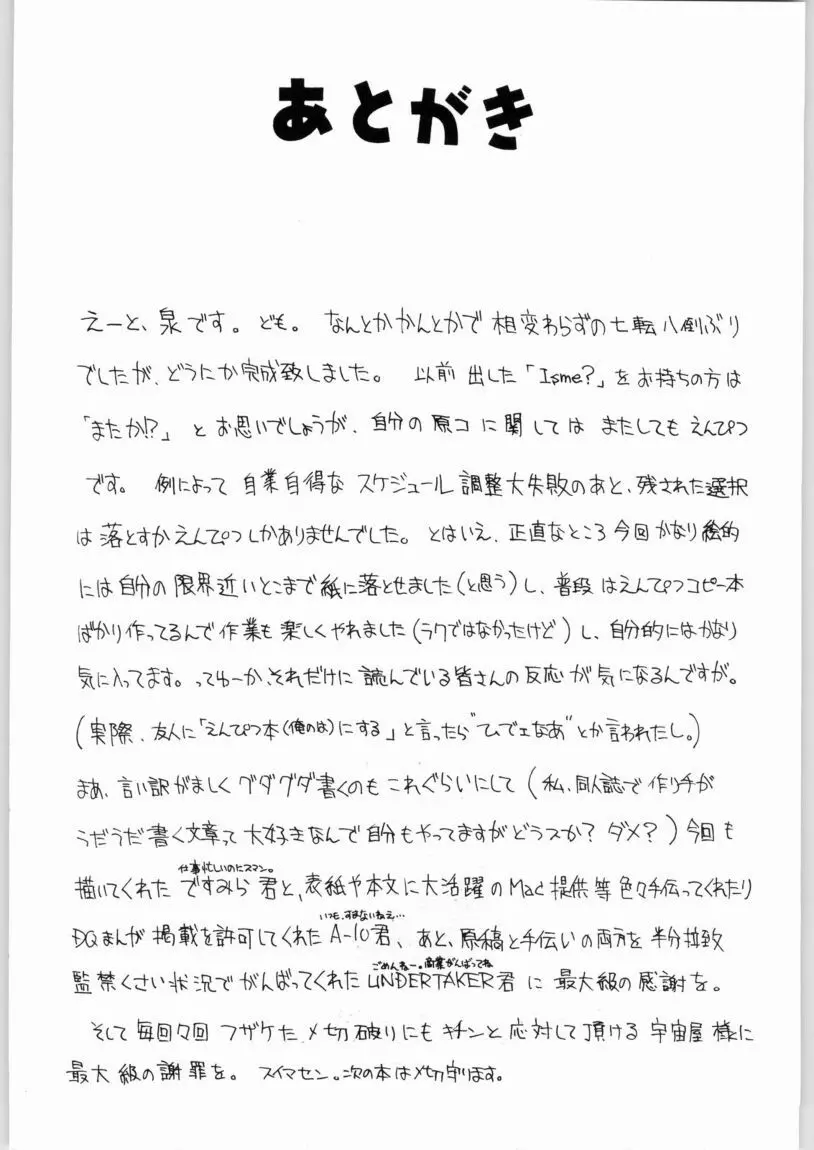 あとがき
えーと、泉です。ども。なんとかかんとかで相変わらずの七転八倒ぶり
でしたが、どうにか完成致しました。以前出した「Isme?」をお持ちの方は
「またか!?」とお思いでしょうが、自分の原コに関してはまたしてもえんぴつ
です。例によって自業自得なスケジュール調整大失敗のあと、残された選択
は落とすかえんぴつしかありませんでした。とはいえ、正直なところ今回かなり絵的
には自分の限界近いとこまで紙に落とせました(と思う)し、普段はえんぴつコピー本
ばかり作ってるんで作業も楽しくやれました(ラクではなかったけど)し、自分的にはかなり
気に入ってます。ってゆーか、それだけに読んでいる皆さんの反応が気になるんですが。
(実際、友人に「えんぴつ本(俺のは)にする」と言ったら"ひでェなあ"とか言われたし。)
まあ、言い訳がましくグダグダ書くのもこれぐらいにして(私、同人誌で作り手が
うだうだ書く文章って大好きなんで自分もやってますがどうスか?ダメ?)今回も
仕事忙しいのにスマン。
描いてくれたですみら君と、表紙や本文に大活躍のMac提供等色々手伝ってくれたり
いつも、すまないねえ…
DQまんが掲載を許可してくれたA-10君、あと、原稿と手伝いの両方を半分拉致
ごめんねー。商業がんばってね
監禁くさい状況でがんばってくれたUNDERTAKER君に最大級の感謝を。
そして毎回々回フザケた〆切破りにもキチンと応対して頂ける宇宙屋様に
最大級の謝罪を。スイマセン。次の本は〆切守ります。